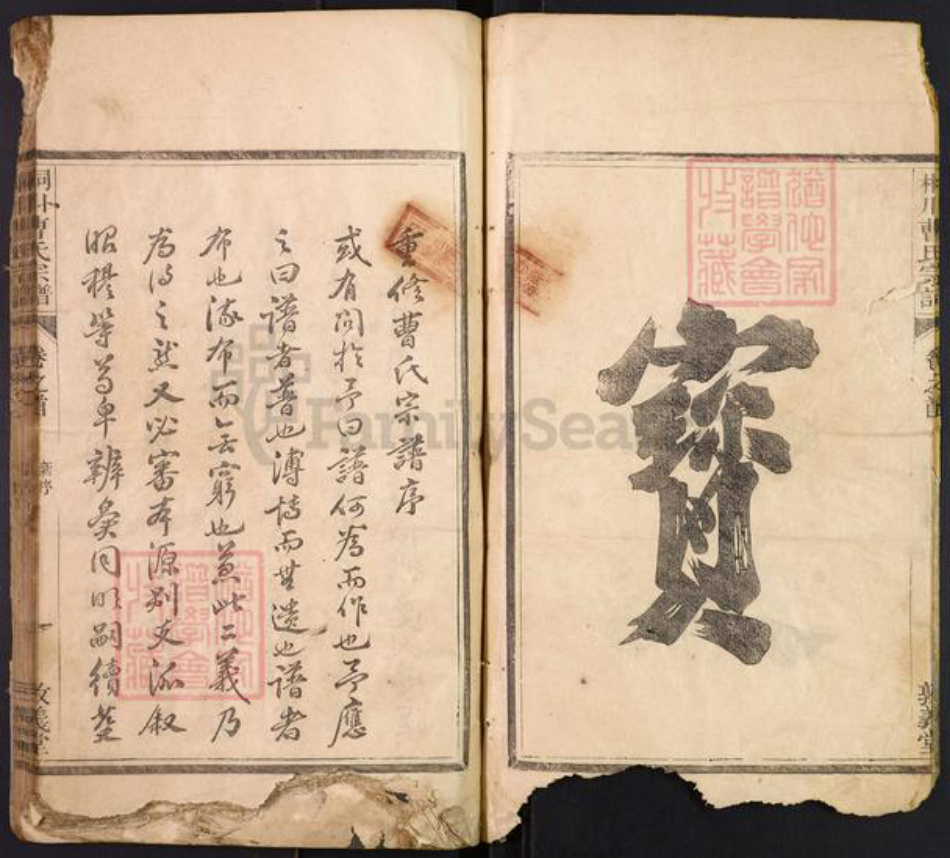 寶
猶他家
譜學會
收藏
桐川曹氏宗譜
卷之首
敦義堂
重修曹氏宗譜序
或有問於予曰譜何為而作也予應
之曰譜者普也溥博而無遺也譜者
布也流布而無窮也兼此二義乃
為得之然又必審本源別支派叙
昭穆等尊卑辨異同明嗣續
猶他家
譜學會
收藏
曹氏宗譜
卷之首
敦義堂
FamilySearch